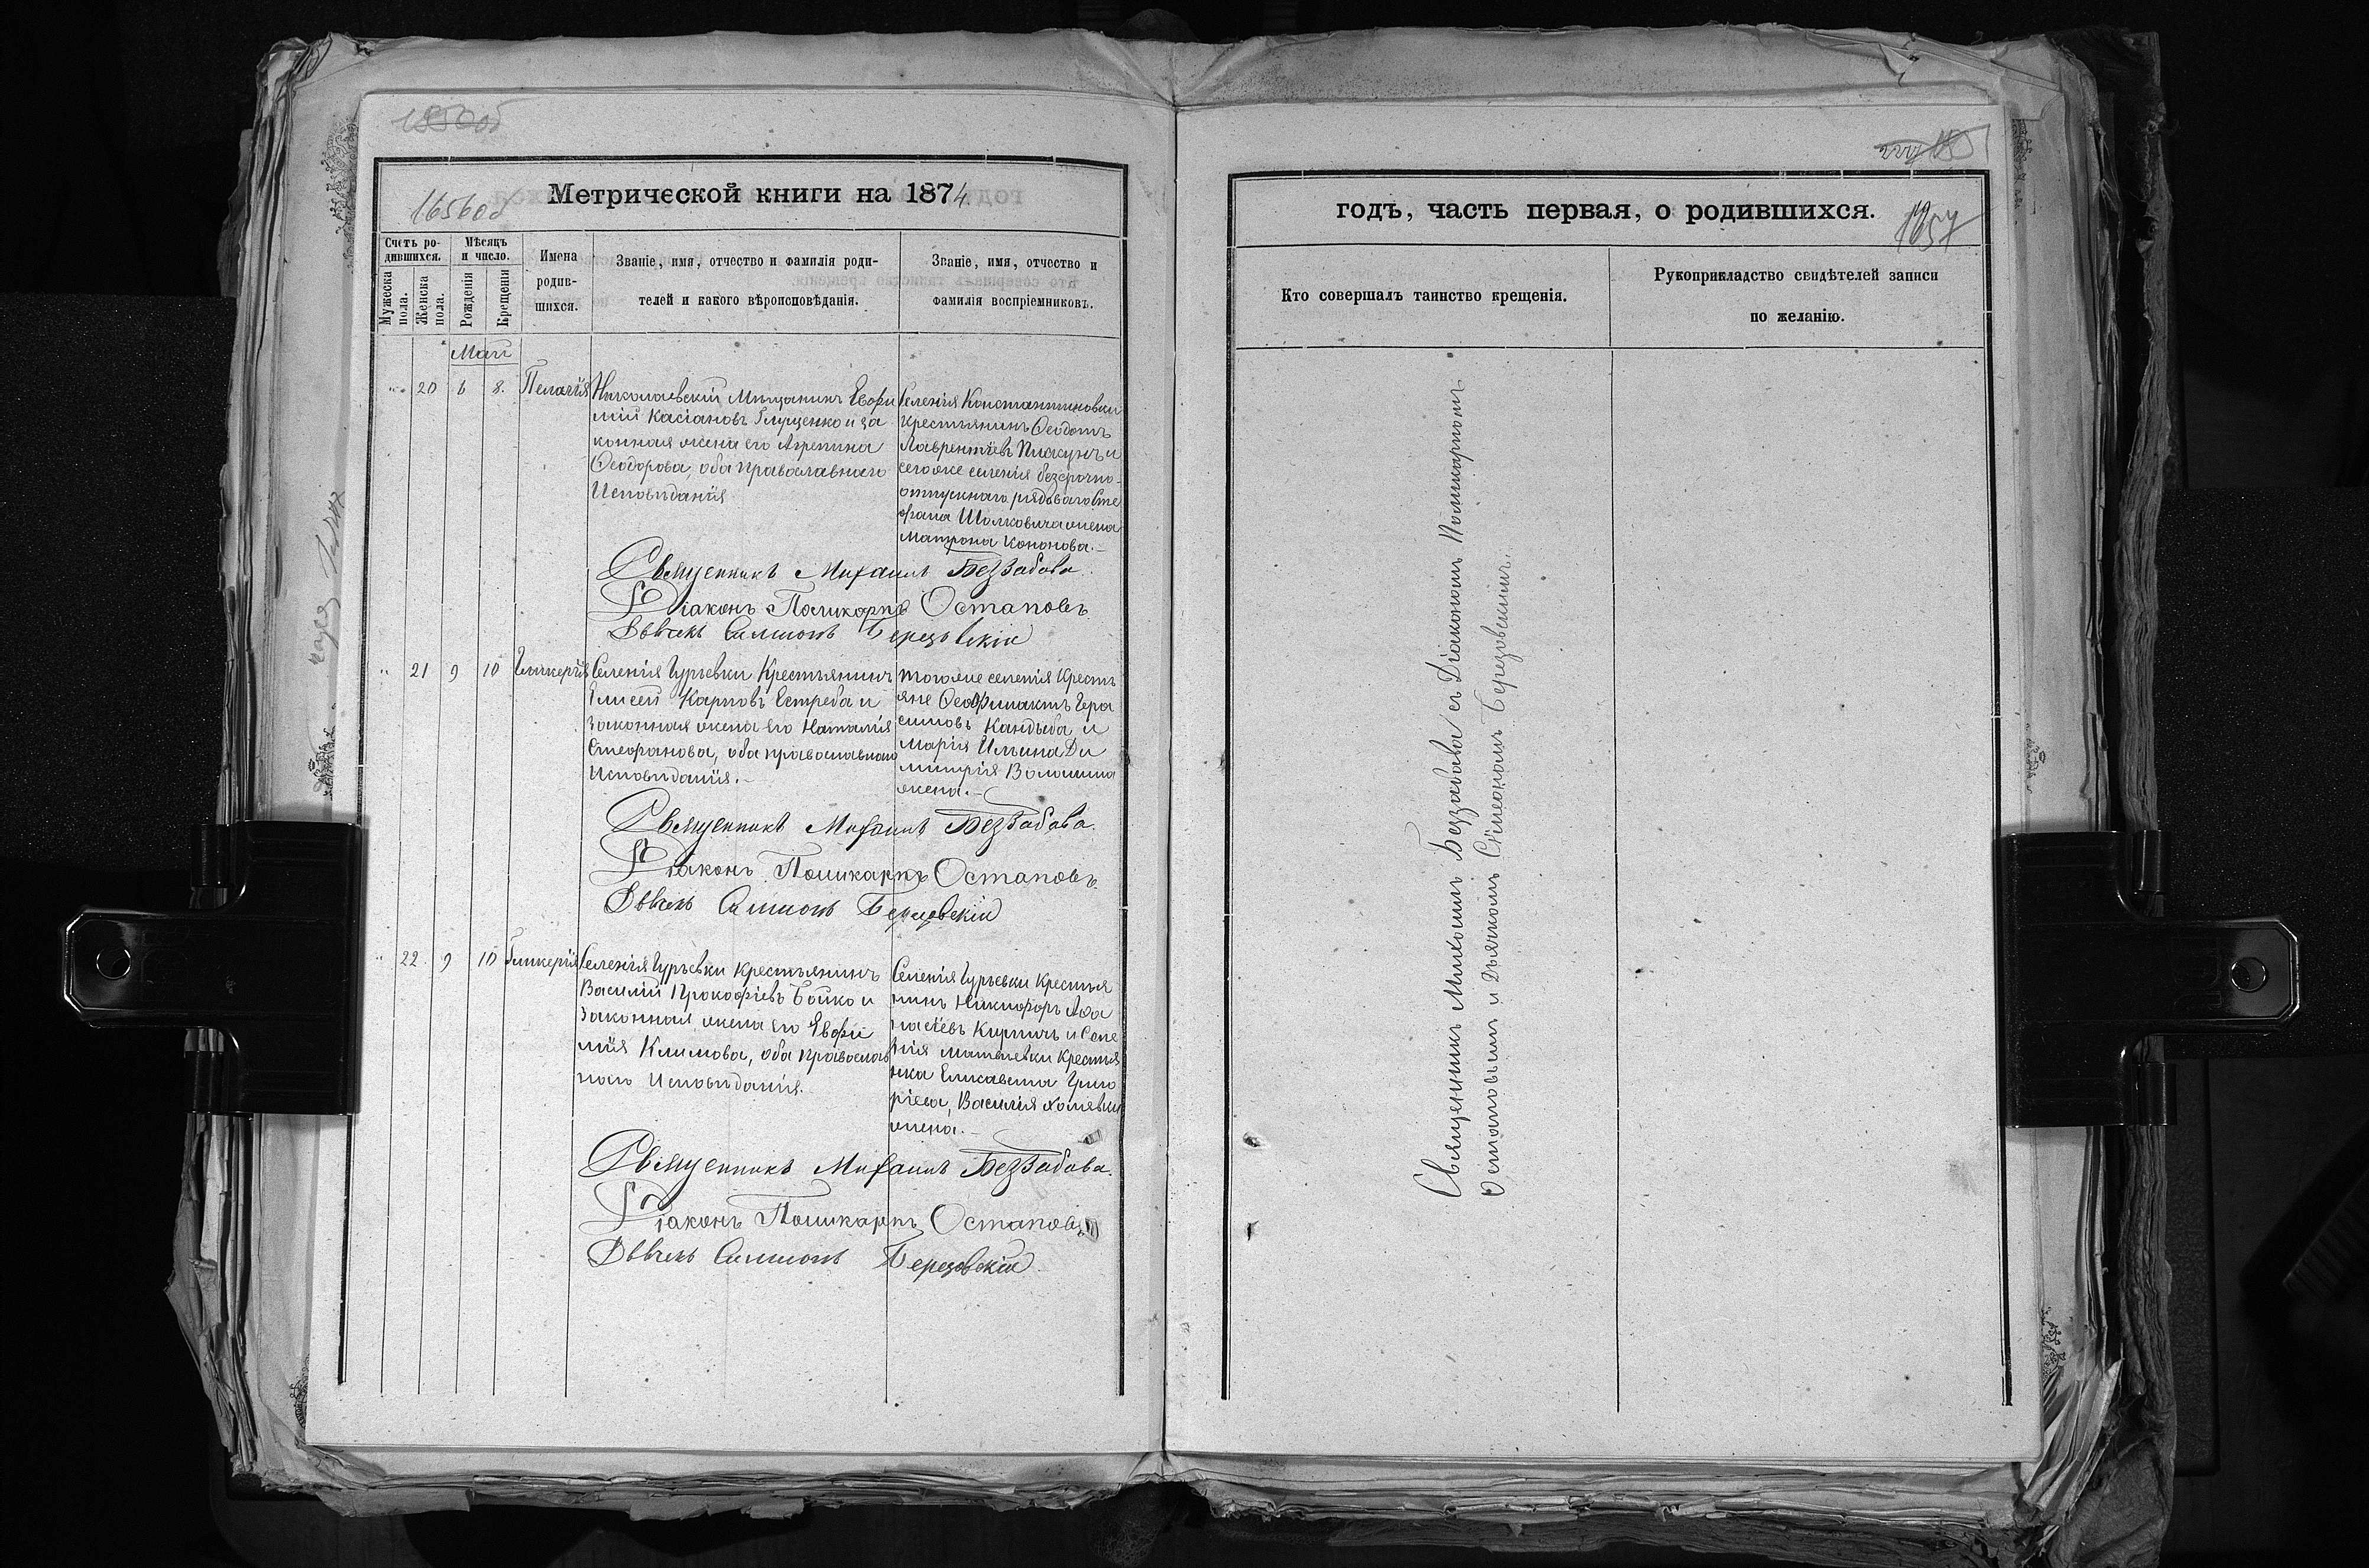 1656об
Метрической книги на 1874
Счетъ ро-
дившихся.
Мѣсяцъ
и число.
Мужеска
пола.
Женска
пола.
Рожденія
Крещенія
Имена
родив-
шихся.
Званіе, имя, отчество и фамилія роди-
телей и какого вѣроисповѣданія.
Званіе, имя, отчество и
фамилія воспріемниковъ.
Май
" 20 6 8. Пелагія
Николаевскій Мѣщанинъ Евфи
мій Касіановъ Глущенко и за
конная жена его Агрепина
Ѳеодорова, оба православнаго
Исповѣданія
Селенія Константиновки
Крестьянинъ Ѳеодотъ
Лаврентіевъ Пискунъ и
сегоже селенія безсрочно-
отпускнаго рядоваго Сте
фана Шолковича жена
Матрона Кононова.-
Священникъ Михаилъ Беззабава
Діаконъ Поликарпъ Остаповъ
Дьячекъ Симеонъ Березовскій
" 21 9 10 Гликерія
Селенія Гурьевки Крестьянинъ
Елисей Карповъ Ястреба и
законная жена его Наталія
Стефанова, оба православнаго
Исповѣданія.-
тогоже селенія Кресть
яне Ѳеофилактъ Гера
симовъ Кандыба и
Марія Ильина Ди
митрія Волошина
жена.-
Священникъ Михаилъ Беззабава.
Діаконъ Поликарпъ Остаповъ.
Дьячекъ Симеонъ Березовскій
" 22. 9 10 Гликерія
Селенія Гурьевки Крестьянинъ
Василій Прокофіевъ Бойко и
законная жена его Евфи
мія Климова, оба православ
наго Исповѣданія.
Селенія Гурьевки Крестья
нинъ Никифоръ Аѳа
насіевъ Кирпичъ и Селе
нія Матвѣевки Крестья
нка Елисавета Григо
ріева, Василія Холявки
жена.-
Священникъ Михаилъ Беззабава.
Діаконъ Поликарпъ Остаповъ
Дьячекъ Симеонъ Березовскій
годъ, часть первая, о родившихся.
1657
Кто совершалъ таинство крещенія.
Рукоприкладство свидѣтелей записи
по желанію.
Священникъ Михаилъ Беззабава съ Діакономъ Поликарпомъ
Остаповымъ и Дьячкомъ Сѵмеономъ Березовскимъ.